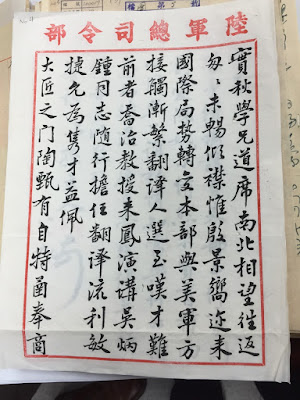 陸軍總司令部
實秋學兄道席南北相望往返
匆匆未暢傾襟惟殷景嚮迩来
國際局勢轉變本部與美軍方
接觸漸繁翻譯人選至嘆才難
前者喬治教授来鳳演講吳炳
鍾同志随行擔任翻譯流利敏
捷允為隽才益佩
大匠之门陶甄有自特函奉商